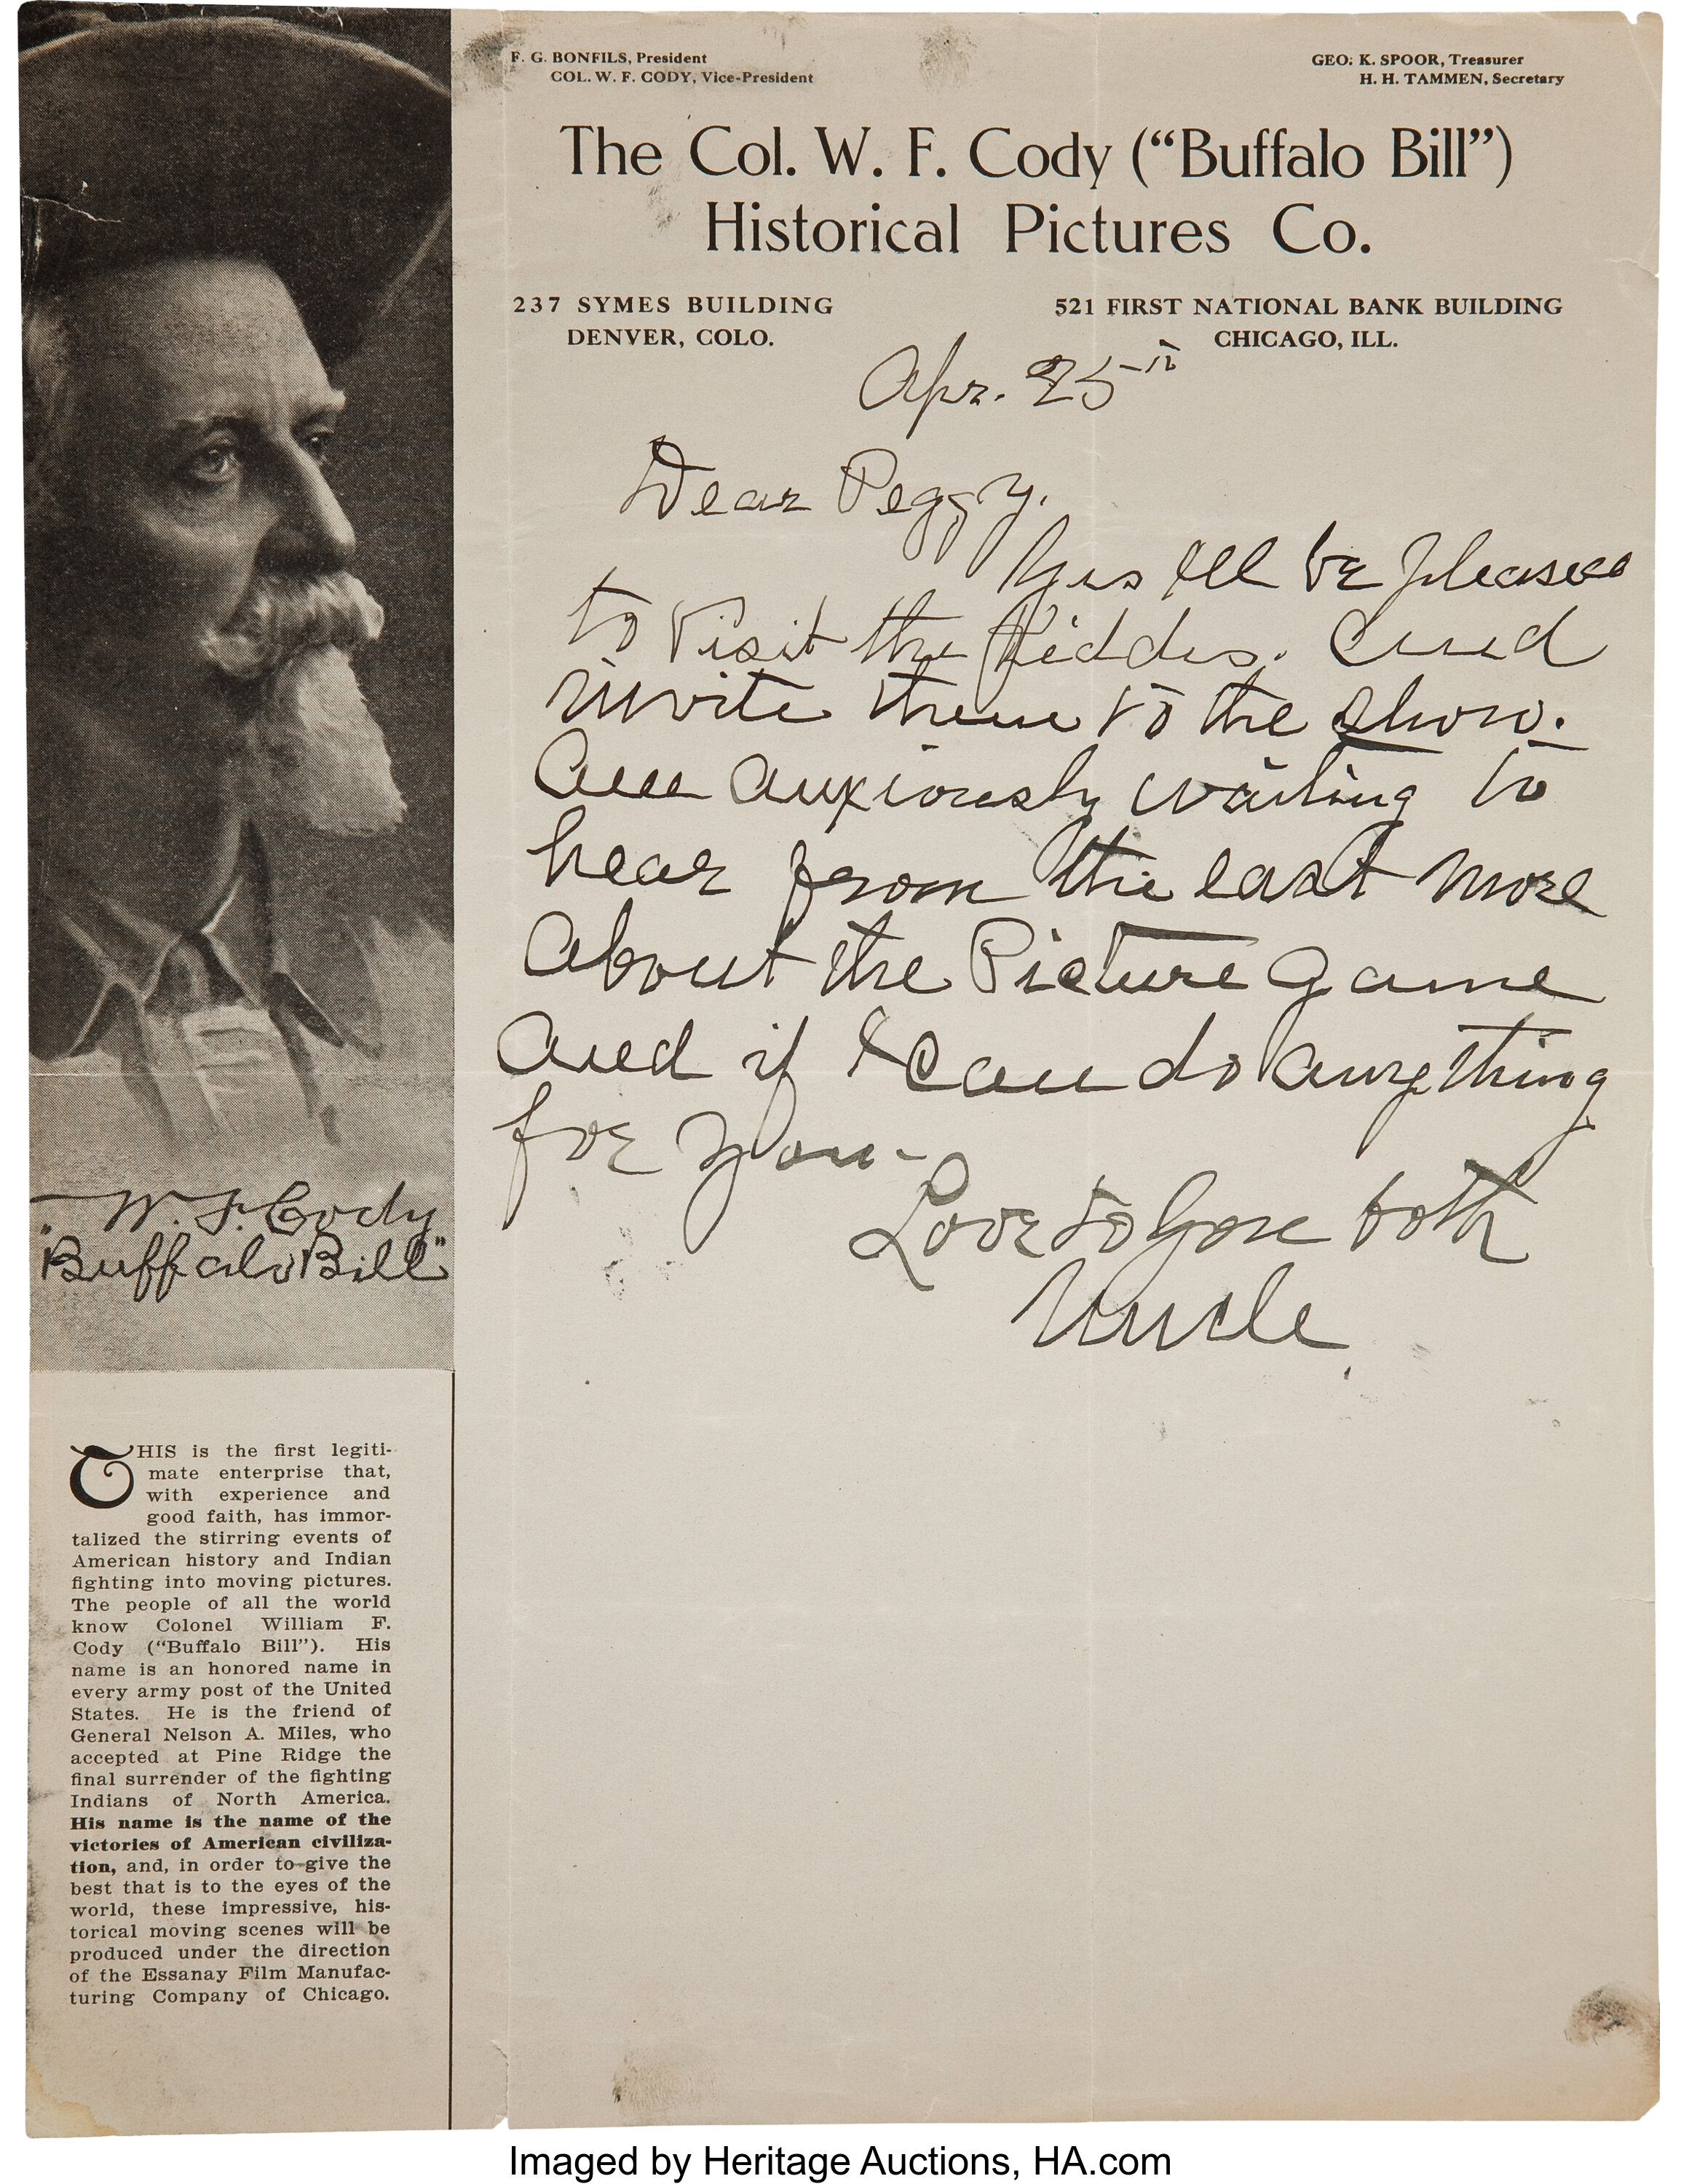 F. G. BONFILS, President
COL. W. F. CODY, Vice-President
GEO. K. SPOOR, Treasurer
H. H. TAMMEN, Secretary
The Col. W. F. Cody (“Buffalo Bill”)
Historical Pictures Co.
237 SYMES BUILDING
DENVER, COLO.
521 FIRST NATIONAL BANK BUILDING
CHICAGO, ILL.
Apr. 25th
Dear Peggy.
Yes Ill be pleased
to visit the Kiddes. And
invite them to the show.
Am anxiously waiting to
hear from the east more
about the Picture game
And if I can do anything
for you-
Love to you both
Uncle
W. F. Cody
"Buffalo Bill"
THIS is the first legiti-
mate enterprise that,
with experience and
good faith, has immor-
talized the stirring events of
American history and Indian
fighting into moving pictures.
The people of all the world
know Colonel William F.
Cody (“Buffalo Bill”). His
name is an honored name in
every army post of the United
States. He is the friend of
General Nelson A. Miles, who
accepted at Pine Ridge the
final surrender of the fighting
Indians of North America.
His name is the name of the
victories of American civiliza-
tion, and, in order to give the
best that is to the eyes of the
world, these impressive, his-
torical moving scenes will be
produced under the direction
of the Essanay Film Manufac-
turing Company of Chicago.
Imaged by Heritage Auctions, HA.com